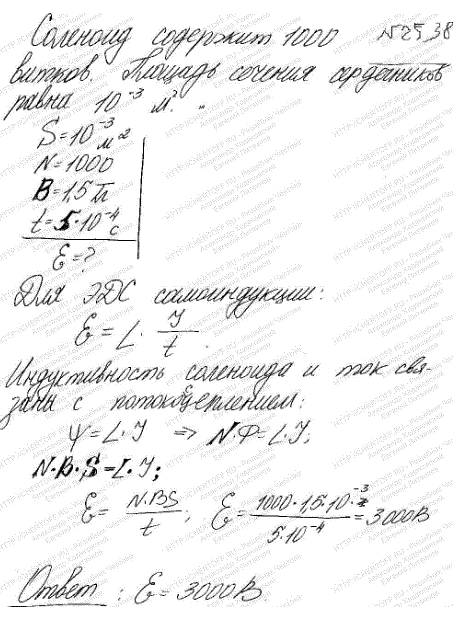 Соленоид содержит 1000 №25.38
витков. Площадь сечения сердечников
равна 10⁻³ м².
S=10⁻³ м²
N=1000
B=1,5 Тл
t=5·10⁻⁴ с
Ɛ=?
Для ЭДС самоиндукции:
Ɛ = L · I/t
Индуктивность соленоида и ток свя-
заны с потокосцеплением:
Ψ=L·I => N·Ф=L·I;
N·B·S=L·I;
Ɛ = N·BS/t; Ɛ = 1000·1,5·10⁻³/5·10⁻⁴ = 3000В
Ответ: Ɛ=3000В